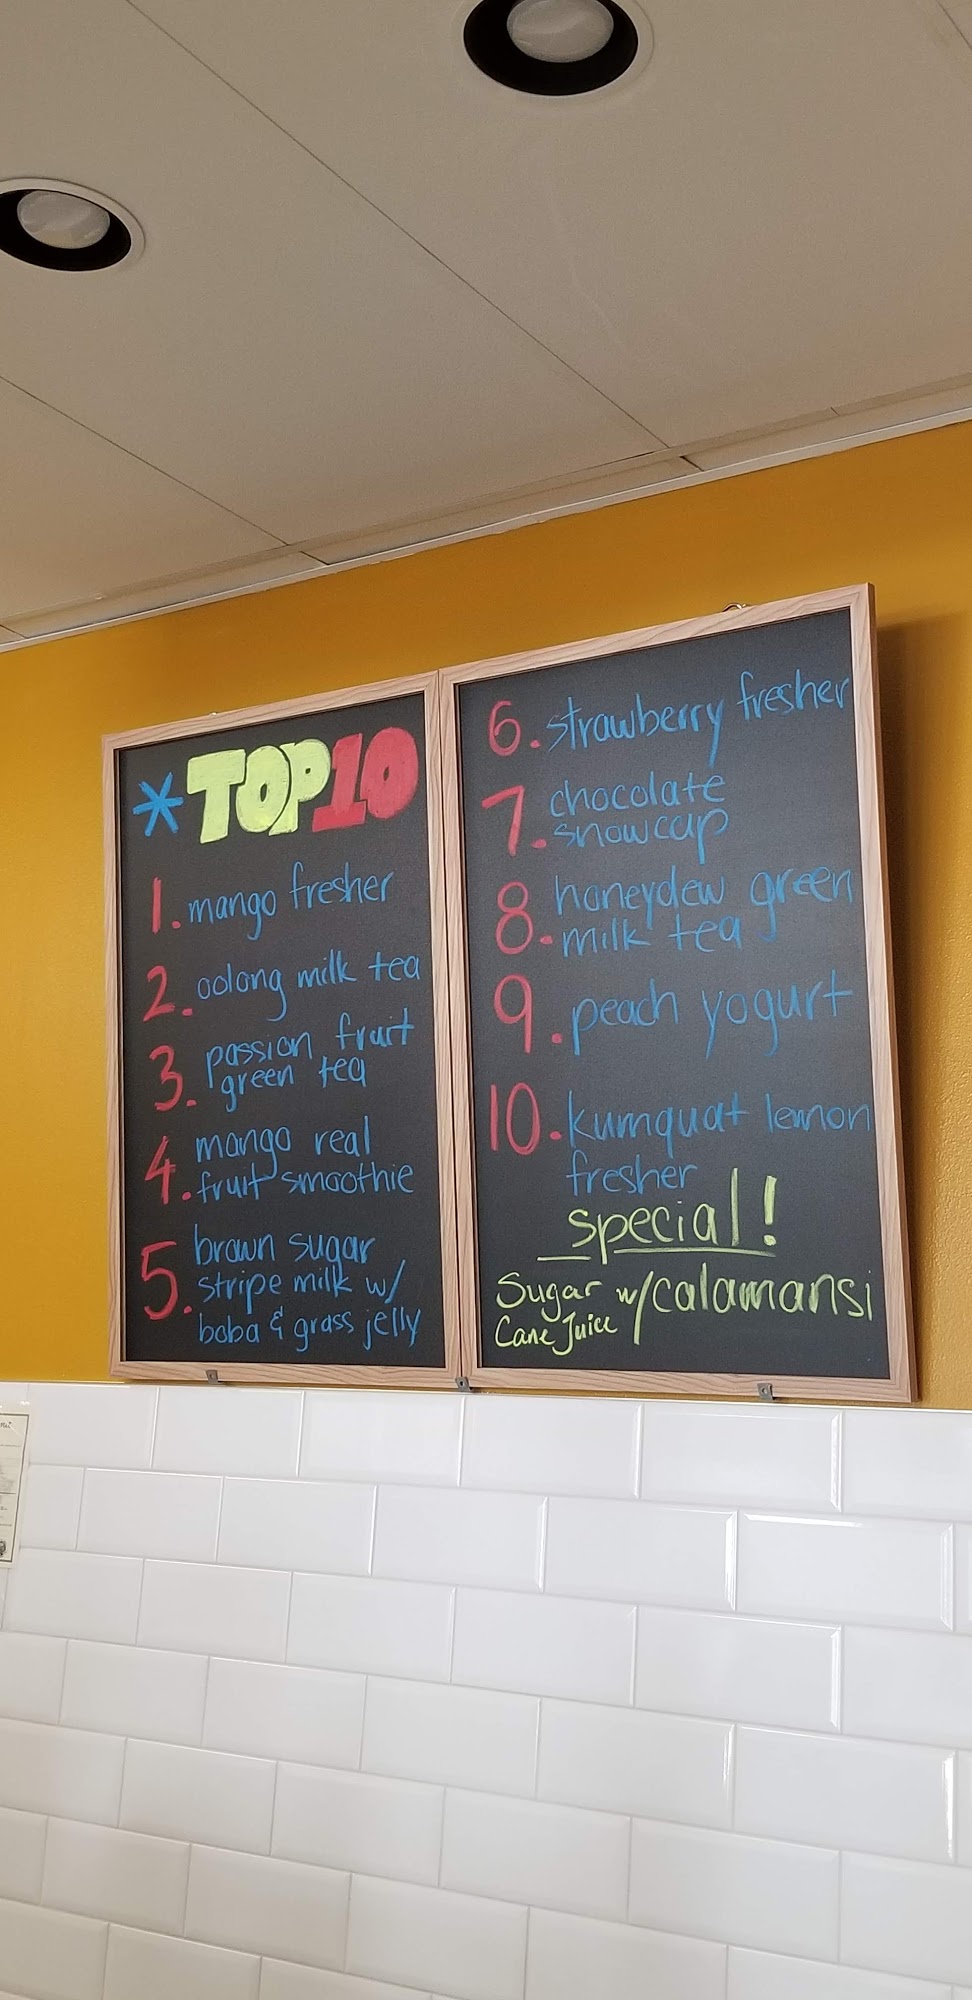 * TOP10
1. mango fresher
2. oolong milk tea
3. passion fruit
green tea
4. mango real
fruit smoothie
5. brown sugar
stripe milk w/
boba & grass jelly
6. strawberry fresher
7. chocolate
snowcap
8. honeydew green
milk tea
9. peach yogurt
10. kumquat lemon
fresher
special!
Sugar w/ calamansi
Cane Juice